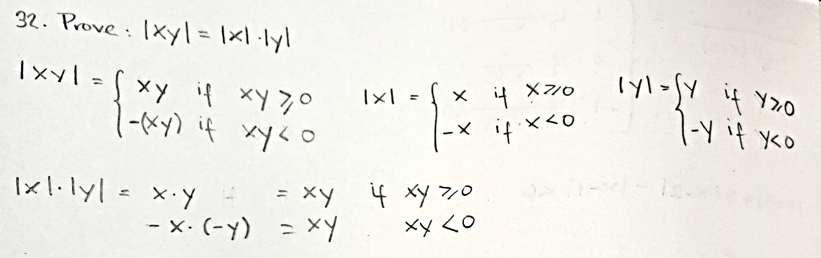 32. Prove: |xy| = |x|·|y|
|xy| = { xy if xy ≥ 0   |x| = { x if x ≥ 0   |y| = { y if y ≥ 0
-(xy) if xy < 0   -x if x < 0   -y if y < 0
|x|·|y| = x·y = xy if xy ≥ 0
-x·(-y) = xy xy < 0